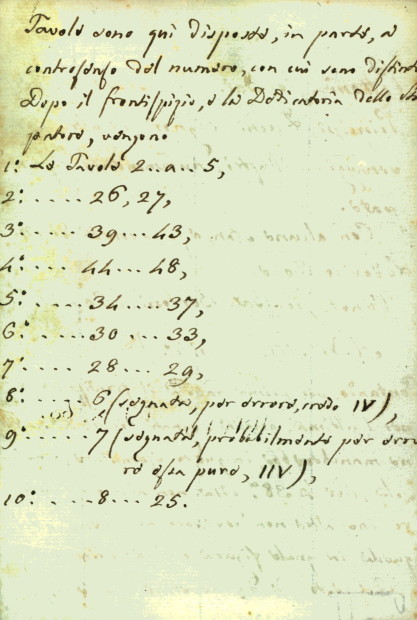 Tavole sono qui disposte, in parte, a
controsenso del numero, con cui sono distinte
Dopo il frontispizio, e la Dedicatoria dello
vengono
1.° Le Tavole 2..a..5,
2.° ..... 26, 27,
3.° ..... 39...43,
4.° ..... 44...48,
5.° ..... 34....37,
6.° ..... 30...33,
7.° ..... 28...29,
8.° ..... 6 (segnata, per errore, credo IV),
9.° ..... 7 (segnata, probabilmente per erro
re essa pure, IIV),
10.° .....8...25.